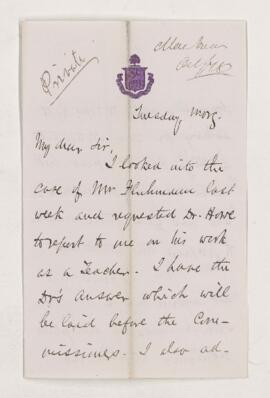 Private
Tuesday Morg.
My dear Sir,
I looked into the
case of Mr last
week and requested Dr. Howe
to report to me on his work
as a Teacher. I have the
Dr's answer which will
be laid before the Com-
missioners. I also ad-